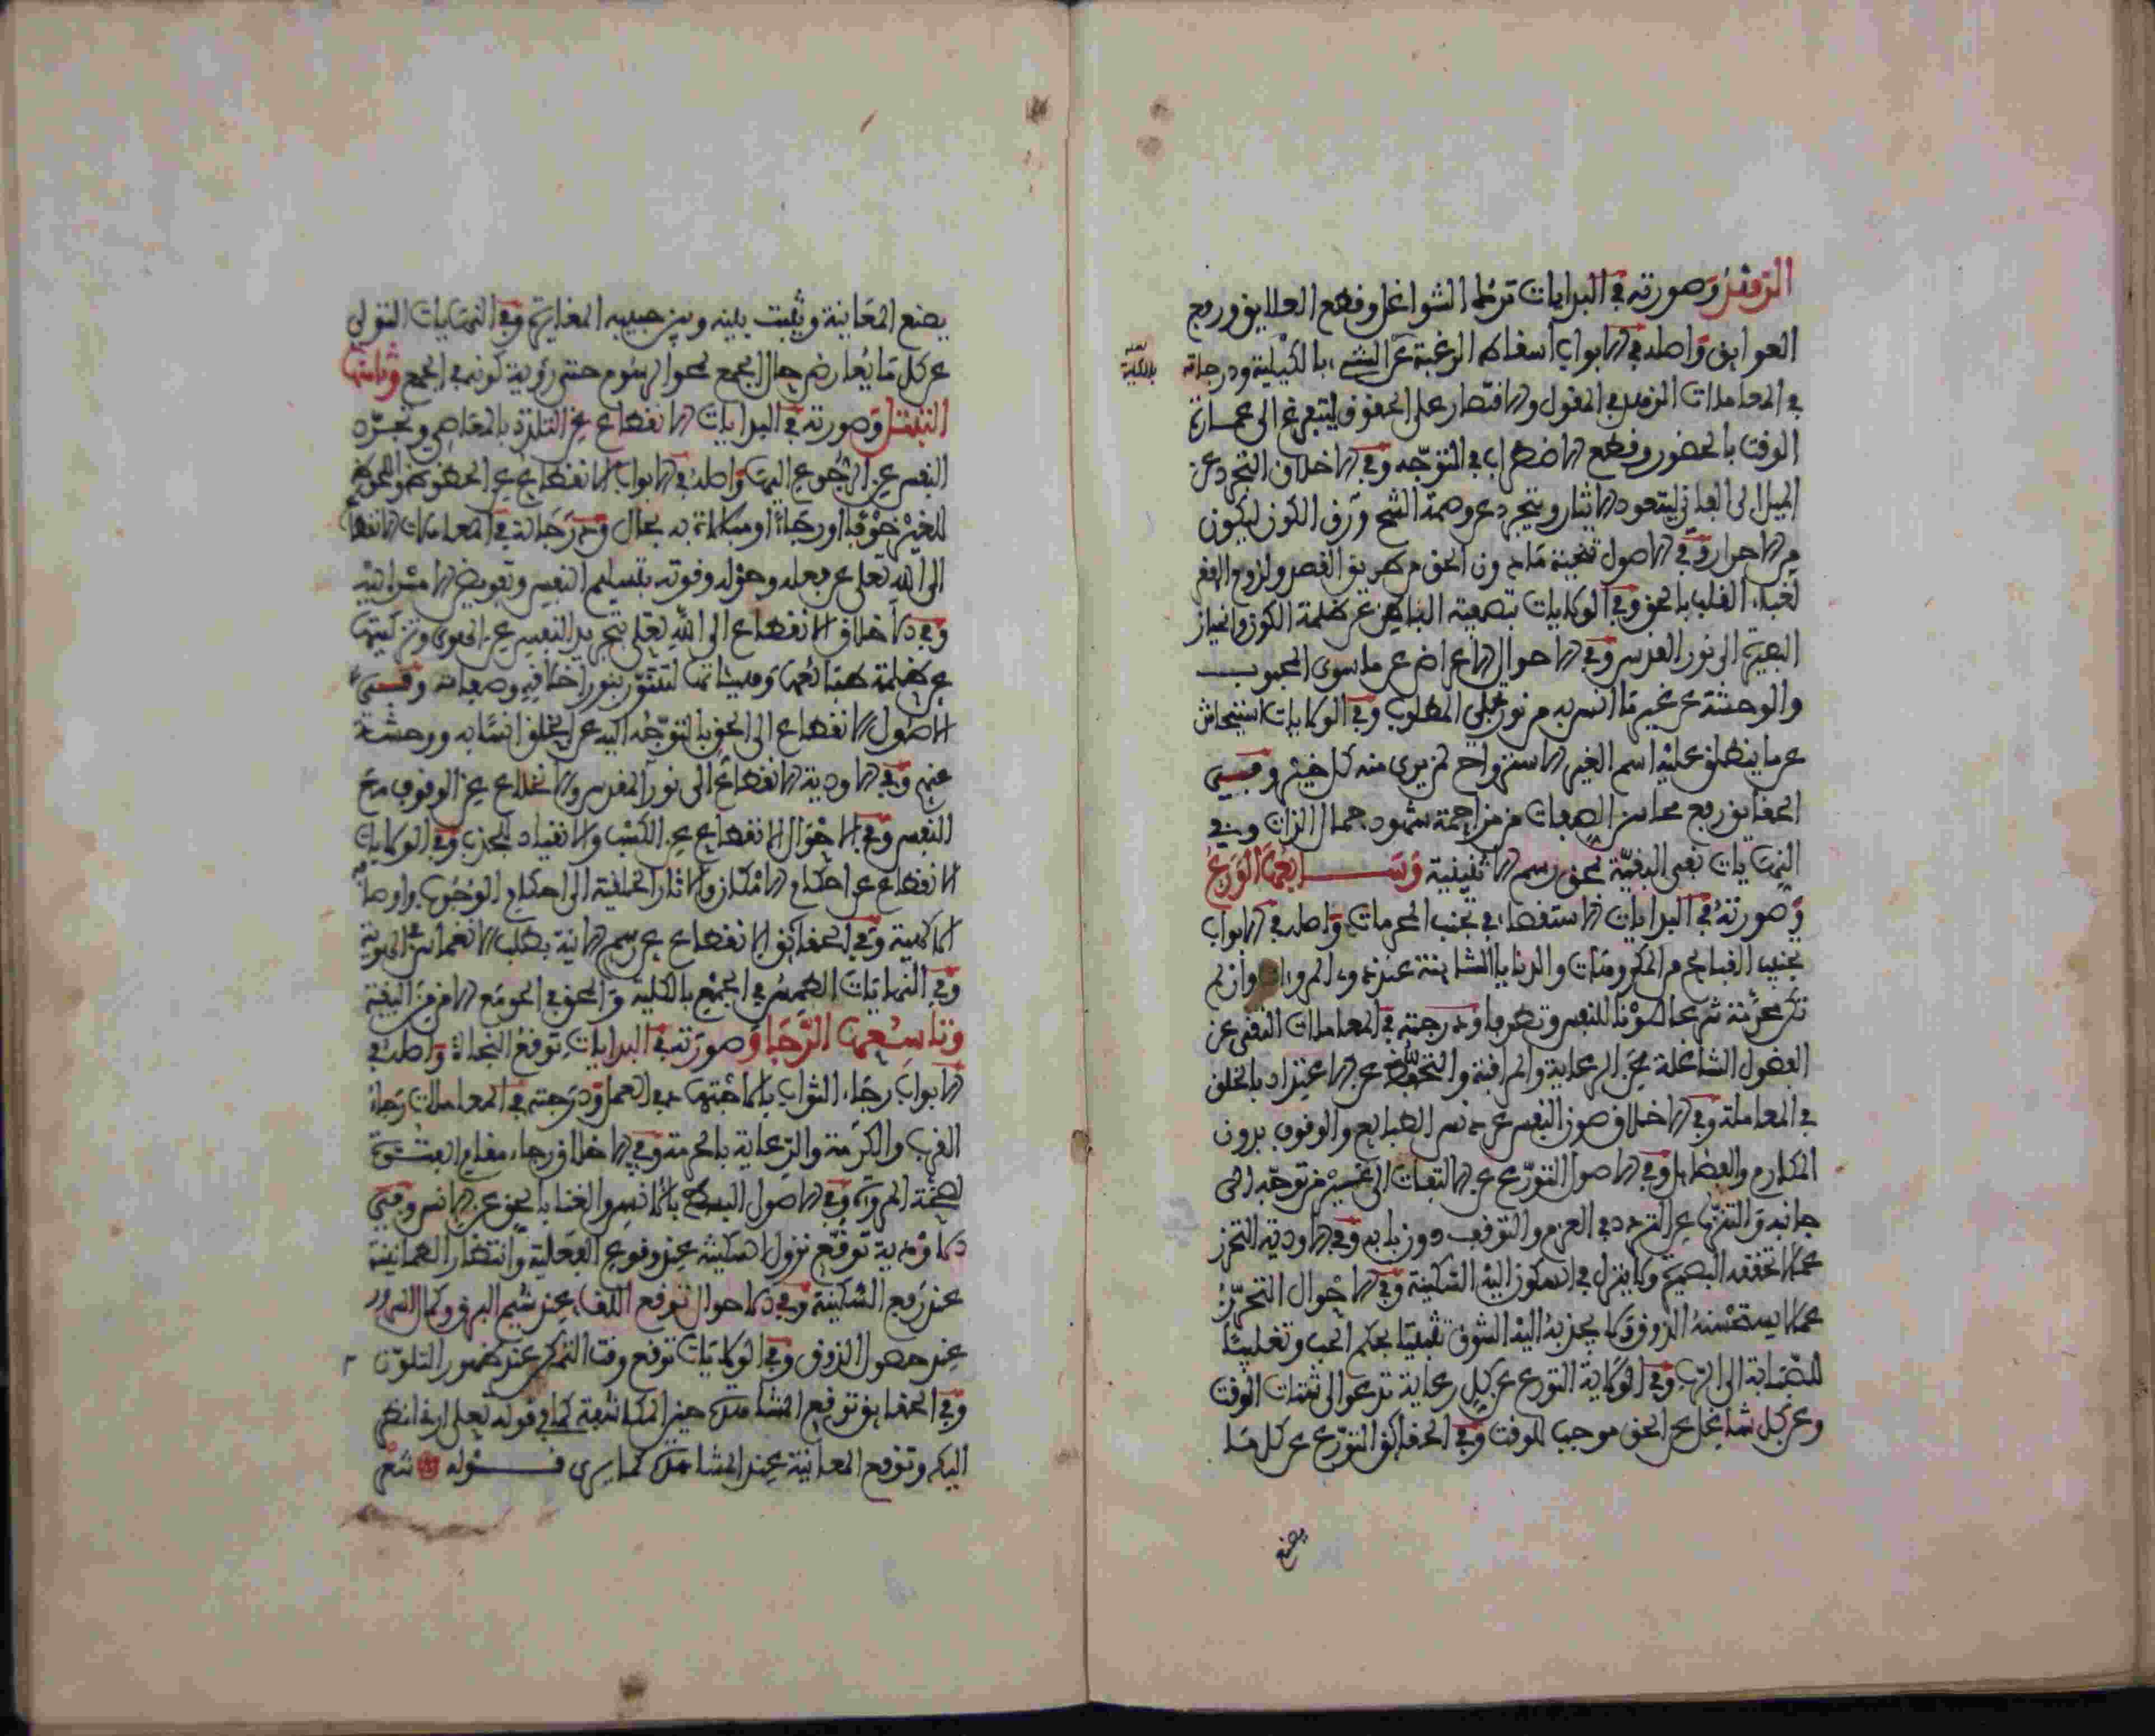 الزهد وصورته في البدايات ترك الشواغل وقطع العلايق ورفع
العوايق واصله في الابواب اسقاط الرغبة عن الشيء بالكلية ودرجاته
في المعاملات الزهد في الفضول والاقتصار على الحقوق ليتفرغ الى عمارة
الوقت بالحضور وقطع الاضطراب في التوجه وفي الاخلاق التجرد عن
الميل الى الفاني ليتعود الايثار ويتجرد عن وصمة الشح ورق الكون ليكون
من الاحرار وفي الاصول تنحية ما دون الحق عن طريق القصد ولزوم الفقر
لغناء القلب بالحق وفي الاودية تصفية الباطن عن ظلمة الكون وانحياز
البصيرة الى نور القدس وفي الاحوال الاعراض عن ما سوى المحبوب
والوحشة عن غير ما انس به من نور تجلي المطلوب وفي الولايات استيحاش
عن ما ينطلق عليه اسم الغير والاسترواح لمن يرى منه كل خير وفي
الحقايق رفع محاسن الصفات عن مزاحمة شهود جمال الذات وفي
النهايات نفى البقية بمحق رسم الاثنينية وسابعها الورع
وصورته في البدايات الاستقصاء في تجنب المحرمات واصله في الابواب
تجنب القبايح من المكروهات والدنايا الشاينة عند ذوي المروءات وان لم
تكن محرمة شرعا صونا للنفس وتطهرها ودرجته في المعاملات التوقي عن
الفضول الشاغلة عن الرعاية والمراقبة والتحفظ عن الاعتداد بالخلق
في المعاملة وفي الاخلاق صون النفس عن دنس الطبايع والوقوف بدون
المكارم والفضايل وفي الاصول التورع عن الالتفات الى غير من توجه الى
جانبه والتنزه عن التردد في العزم والتوقف دون بابه وفي الاودية التحرز
عما لا تحققه البصيرة ولا ينزل في السكون اليه السكينة وفي الاحوال التحرز
عما لا يستحسنه الذوق ولا يجذبه اليه الشوق تثبيتا بحكم الحب وتغليبا
للصبابة الى الرب وفي الولاية التورع عن كل رعاية تدعو الى شتات الوقت
وعن كل شاغل عن الحق موجب للمقت وفي الحقايق التورع عن كل ما
يضع
يضع المعاينة ويثبت بينه وبين حبيبه المغايرة وفي النهايات التوقي
عن كل ما يعارض حال الجمع لمحو الرسوم حتى رؤية كونه في الجمع وثامنها
التبتل وصورته في البدايات الانقطاع عن التلذذ بالمعاصي وتجرد
النفس عن الرجوع اليها واصله في الابواب الانقطاع عن الحظوظ واللحوظ
للغير خوفا او رجاء او مبالاة به بحال ودرجاته في المعاملات الانقطاع
الى الله تعلى عن فعله وحوله وقوته بتسليم النفس وتفويض الامر اليه
وفي الاخلاق الانقطاع الى الله تعلى بتجريد النفس عن الهوى وتزكيتها
عن ظلمة طبايعها وهيئاتها لتتنور بنور اخلاقه وصفاته وفي
الاصول الانقطاع الى الحق بالتوجه اليه عن الخلق انسا به ووحشة
عنهم وفي الاودية الانقطاع الى نور القدس والانخلاع عن الوقوف مع
النفس وفي الاحوال الانقطاع عن الكسب والانقياد للجذب وفي الولايات
الانقطاع عن احكام الامكان والاثار الخلقية الى احكام الوجوب واوصاف
الالهية وفي الحقايق الانقطاع عن رسم الانية بطلب الانغماس في الهوية
وفي النهايات الطمس في الجمع بالكلية والمحق في الهو مع الامن من البقية
وتاسعها الرجا وصورته في البدايات توقع النجاة واصله في
الابواب رجاء الثواب بالاجتهاد في العمل ودرجته في المعاملات رجاء
القرب والكرامة والرعاية بالحرمة وفي الاخلاق رجاء مقام الفتوة
لصحة المروة وفي الاصول البسط بالانس والغنا بالحق عن الانس وفي
الاودية توقع نزول السكينة عند وقوع الغفلة وانتظار الطمانينة
عند رفع السكينة وفي الاحوال توقع اللقاء عند شيم البرق وكمال السرور
عند حصول الذوق وفي الولايات توقع وقت التمكن عند ظهور التلون
وفي الحقايق توقع المشاهدة حين المكاشفة كما في قوله تعلى ارني انظر
اليك وتوقع المعاينة عند المشاهدة كما يرى قوله شعر